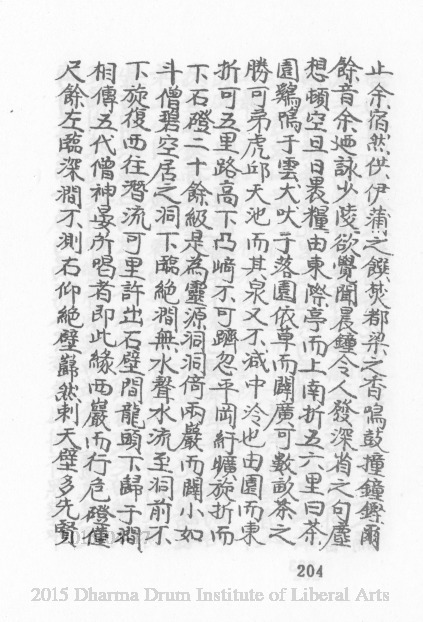 止余宿然供伊蒲之饌焚都梁之香鳴鼓撞鐘鏗爾
餘音余廼詠少陵欲覺聞晨鐘令人發深省之句塵
想頓空旦日裹糧由東際亭而上南折五六里曰茶
園鷄鳴于雲犬吠于落園依草而闢廣可數畝茶之
勝可弟虎邱天池而其泉又不減中泠也由園而東
折可五里路高下凸崎不可躋忽平岡紆曠旋折而
下石磴二十餘級是為靈源洞洞倚兩巖而闢小如
斗僧碧空居之洞下臨絶澗無水聲水流至洞前不
下旋復西往潛流可里許出石壁間龍頭下歸于澗
相傳五代僧神晏所喝者即此緣西巖而行危磴僅
尺餘左臨深澗不測右仰絶壁巋然刺天壁多先賢
204
2015 Dharma Drum Institute of Liberal Arts